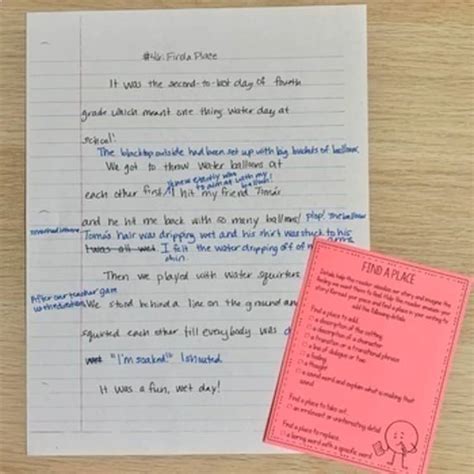 #46: Find a Place
It was the second-to-last day of fourth
grade which meant one thing: water day at
school!
The blacktop outside had been set up with big buckets of balloons.
We got to throw water balloons at
I knew exactly who
to aim at with my
balloon!
each other first. I hit my friend Tomás
and he hit me back with so many balloons! plop! The balloon
smashed
Tomás hair was dripping wet and his shirt was stuck to his
I was all wet I felt the water dripping off of my arms
chin.
Then we played with water squirters.
After our teacher gave
us the directions
We stood behind a line on the ground and
squirted each other till everybody was
wet "I'm soaked!" I shouted.
It was a fun, wet day!
FIND A PLACE
Details help the reader visualize our story and imagine the
add the following details.
Find a place to add:
a description of the setting
a description of a character
a transition or a transitional phrase
a bit of dialogue or two
a feeling
a thought
a sound word and explain what is making that
sound
Find a place to take out:
an irrelevant or uninteresting detail
Find a place to replace:
a boring word with a specific word